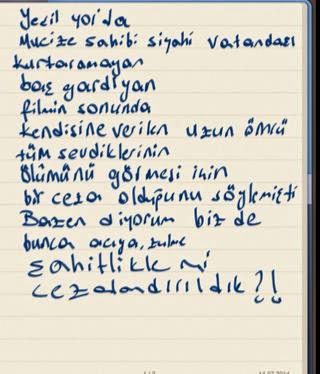 Yeşil yol'da
Mucize sahibi siyahi vatandaşı
kurtaramayan
baş gardiyan
filmin sonunda
kendisine verilen uzun ömrü
tüm sevdiklerinin
ölümünü görmesi için
bir ceza olduğunu söylemişti
Bazen diyorum biz de
bunca acıya, zulme
şahitlikle mi
cezalandırıldık?!